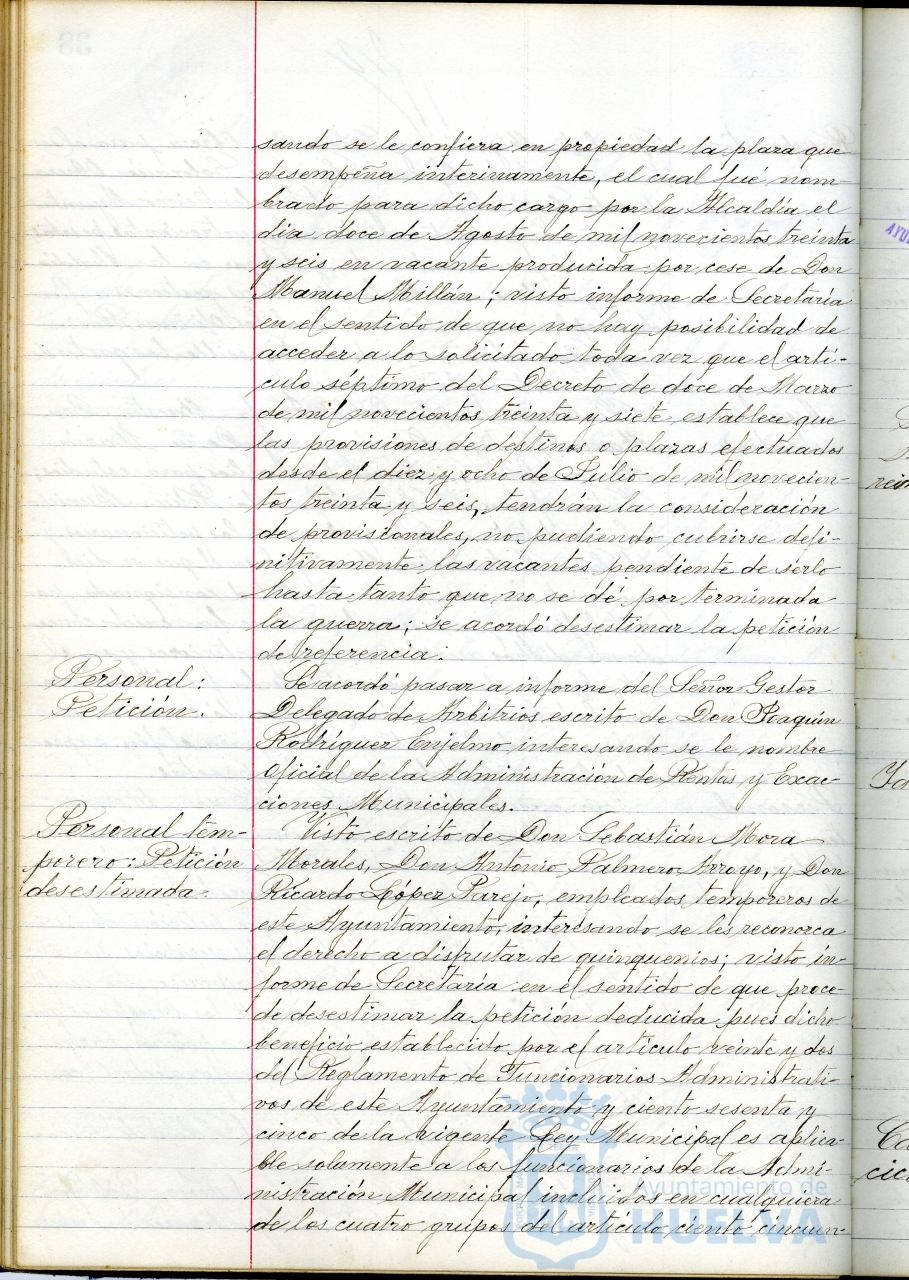 sando se le confiera en propiedad la plaza que
desempeña interinamente, el cual fué nom-
brado para dicho cargo por la Alcaldía el
dia doce de Agosto de mil novecientos treinta
y seis en vacante producida por cese de Don
Manuel Millán; visto informe de Secretaría
en el sentido de que no hay posibilidad de
acceder a lo solicitado toda vez que el artí-
culo séptimo del Decreto de doce de Marzo
de mil novecientos treinta y siete, establece que
las provisiones de destinos o plazas efectuados
desde el diez y ocho de Julio de mil novecien-
tos treinta y seis, tendrán la consideración
de provisionales, no pudiendo cubrirse defi-
nitivamente las vacantes pendiente de serlo
hasta tanto que no se dé por terminada
la guerra; se acordó desestimar la petición
de referencia.
Personal:
Petición.
Se acordó pasar a informe del Señor Gestor
Delegado de Arbitrios escrito de Don Joaquín
Rodríguez Enjelmo interesando se le nombre
Oficial de la Administración de Rentas y Exac-
ciones Municipales.
Personal tem-
porero: Petición
desestimada.
Visto escrito de Don Sebastián Mora
Morales, Don Antonio Palmero Arroyo, y Don
Ricardo López Parejo, empleados temporeros de
este Ayuntamiento, interesando se les reconozca
el derecho a disfrutar de quinquenios; visto in-
forme de Secretaría en el sentido de que proce-
de desestimar la petición deducida pues dicho
beneficio establecido por el artículo veinte y dos
del Reglamento de Funcionarios Administrati-
vos de este Ayuntamiento y ciento sesenta y
cinco de la vigente Ley Municipal es aplica-
ble solamente a los funcionarios de la Admi-
nistración Municipal incluidos en cualquiera
de los cuatro grupos del artículo ciento cincuen-
Ayuntamiento de
HUELVA